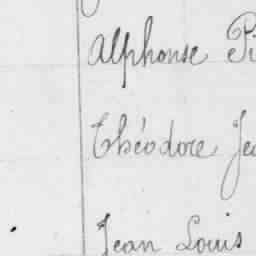 Alphonse Pi
Théodore Jea
Jean Louis